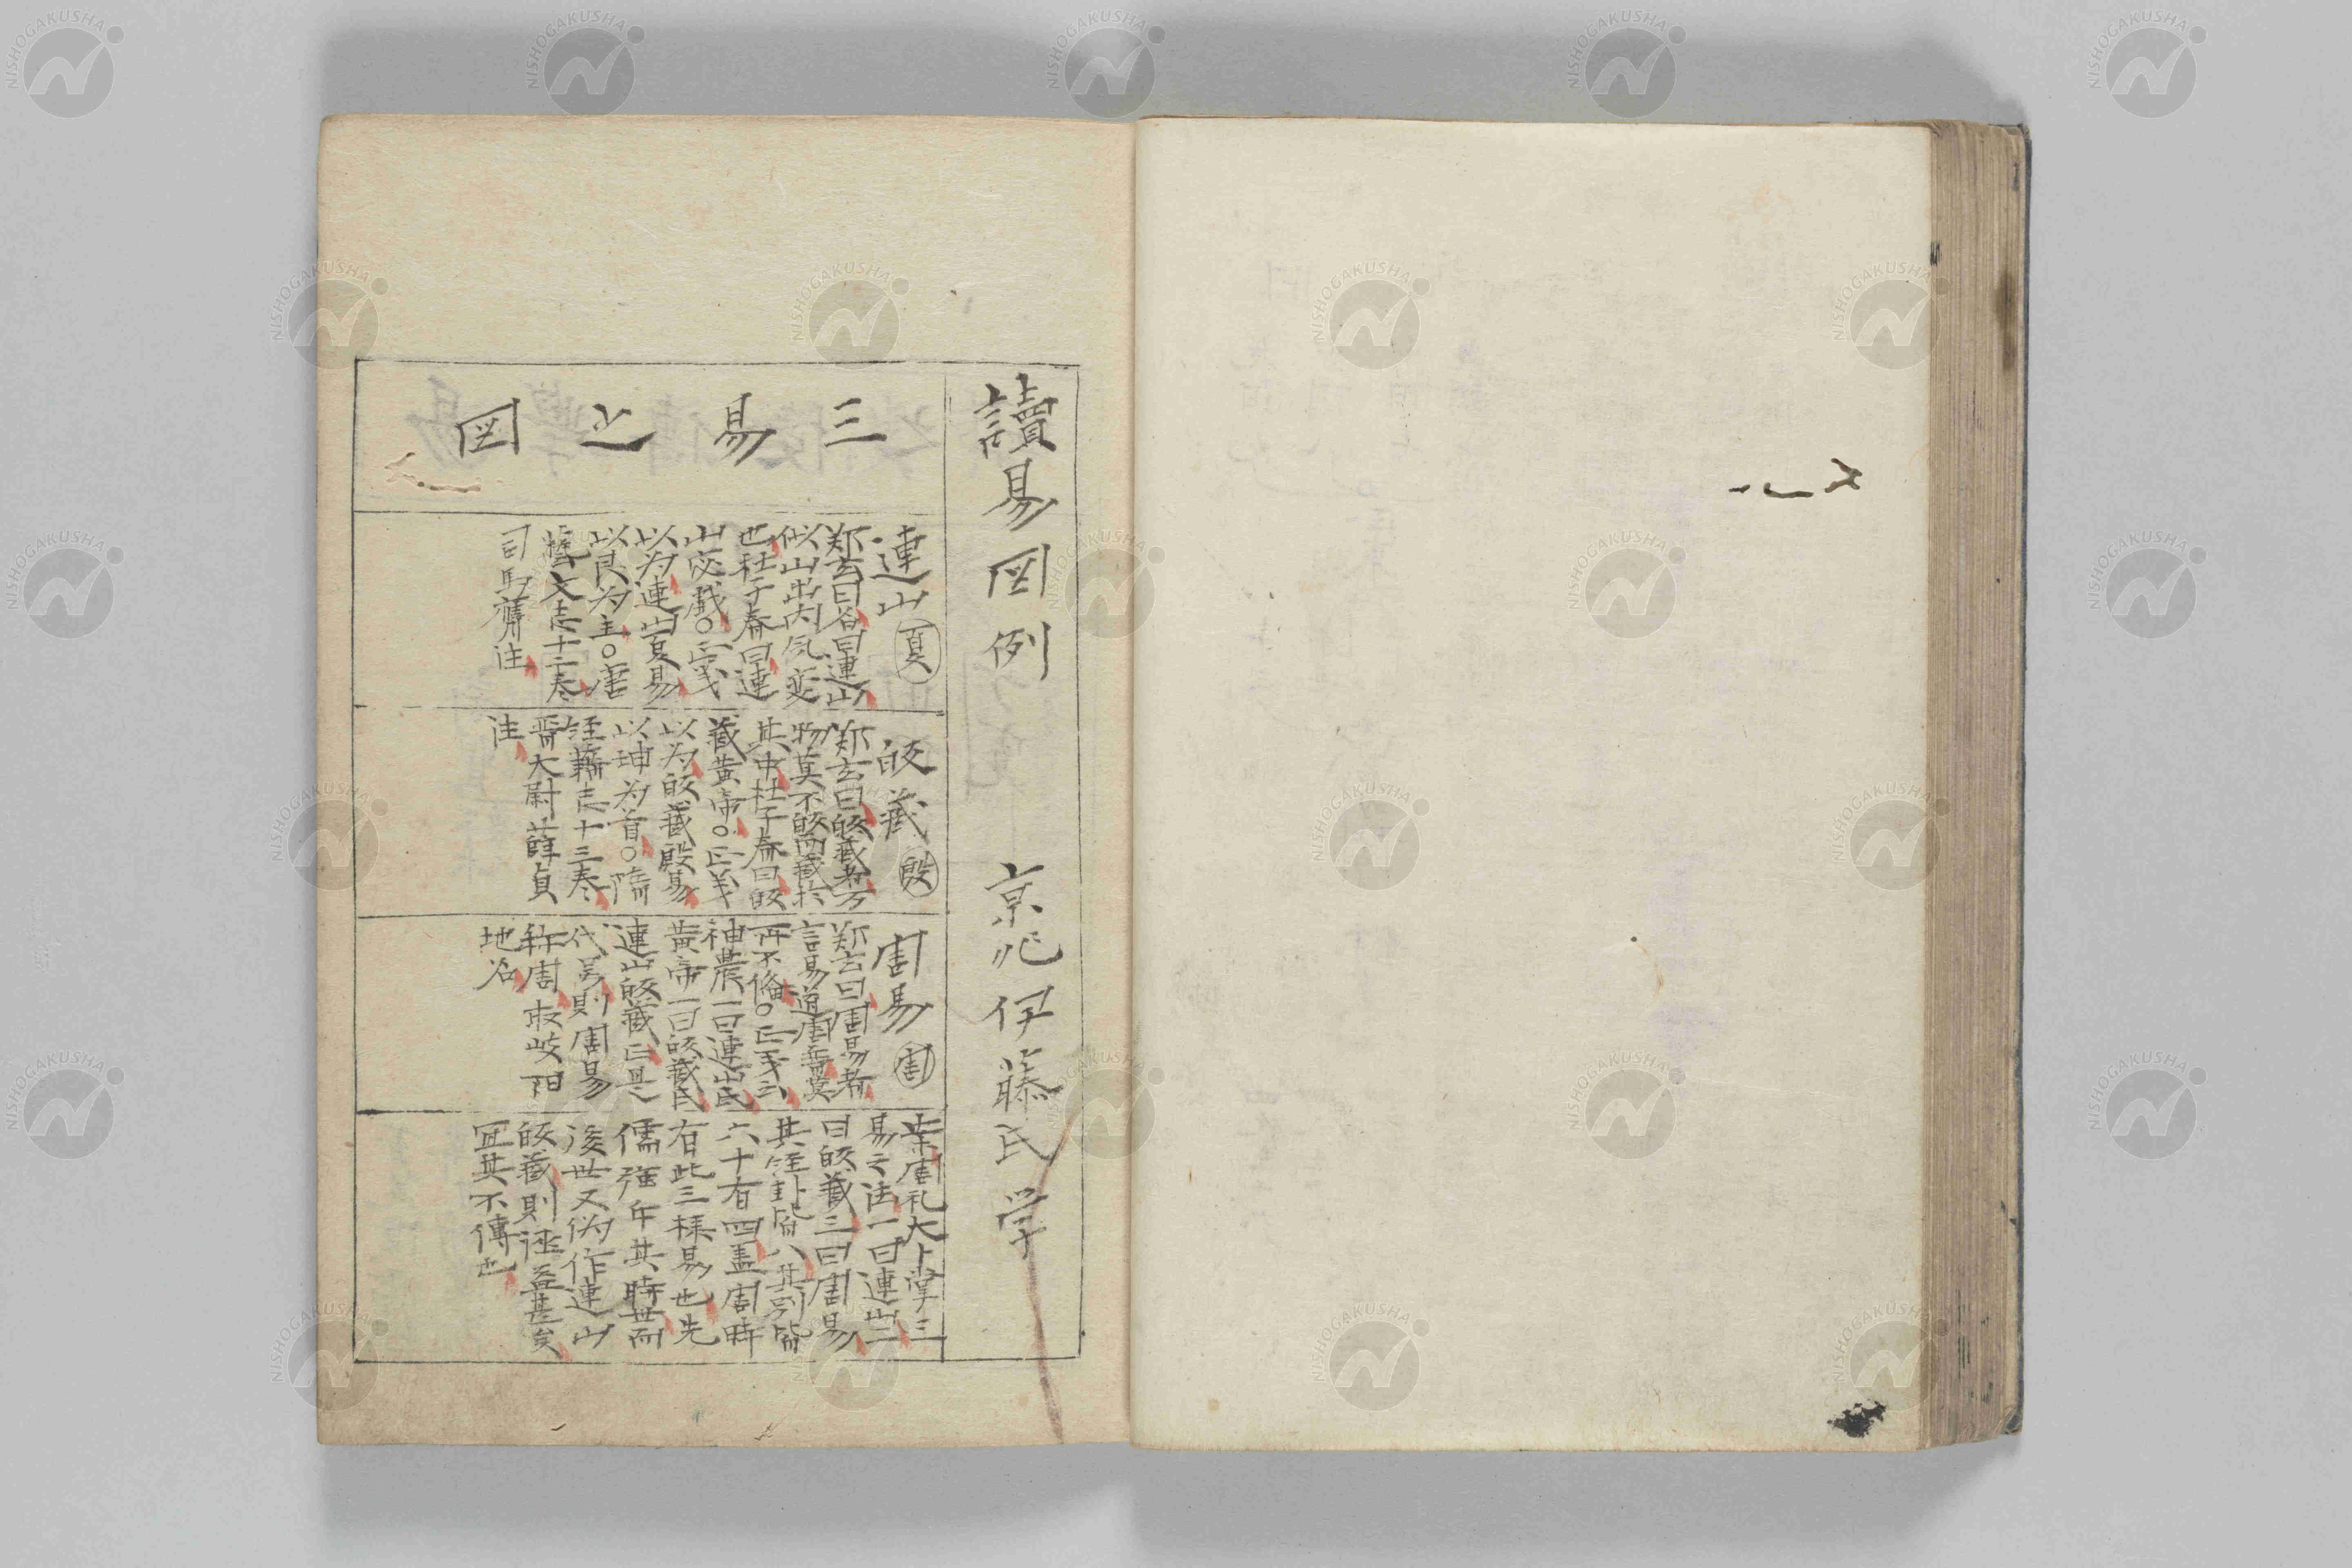 讀易圖例　京兆伊藤氏学
三易之図
連山　夏
鄭玄曰名曰連山
似山出内気変
也杜子春曰連
山宓戯○正義
以為連山夏易
以艮為主○唐
藝文志十二巻
司馬膺注
皈藏　殷
鄭玄曰皈藏者万
物莫不皈而藏於
其中杜子春曰皈
藏黄帝○正義
以為皈藏殷易
以坤為首○隋
経籍志十三巻
晋大尉薛貞
注
周易　周
鄭玄曰周易者
言易道周普莫
所不備○正義云
神農一曰連山氏
黄帝一曰皈藏氏
連山皈藏正是
代号則周易
称周取岐阳
地名
業周礼大卜掌三
易之法一曰連山二
曰皈藏三曰周易
其経卦皆八其別皆
六十有四蓋周時
有此三様易也先
儒強午其時世而
後世又偽作連山
皈藏則誣益甚矣
宜其不傳也
NISHOGAKUSHA